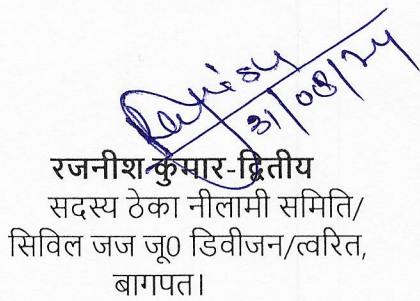 Rajnish
31/08/24
रजनीश कुमार-द्वितीय
सदस्य ठेका नीलामी समिति/
सिविल जज जू0 डिवीजन/त्वरित,
बागपत।